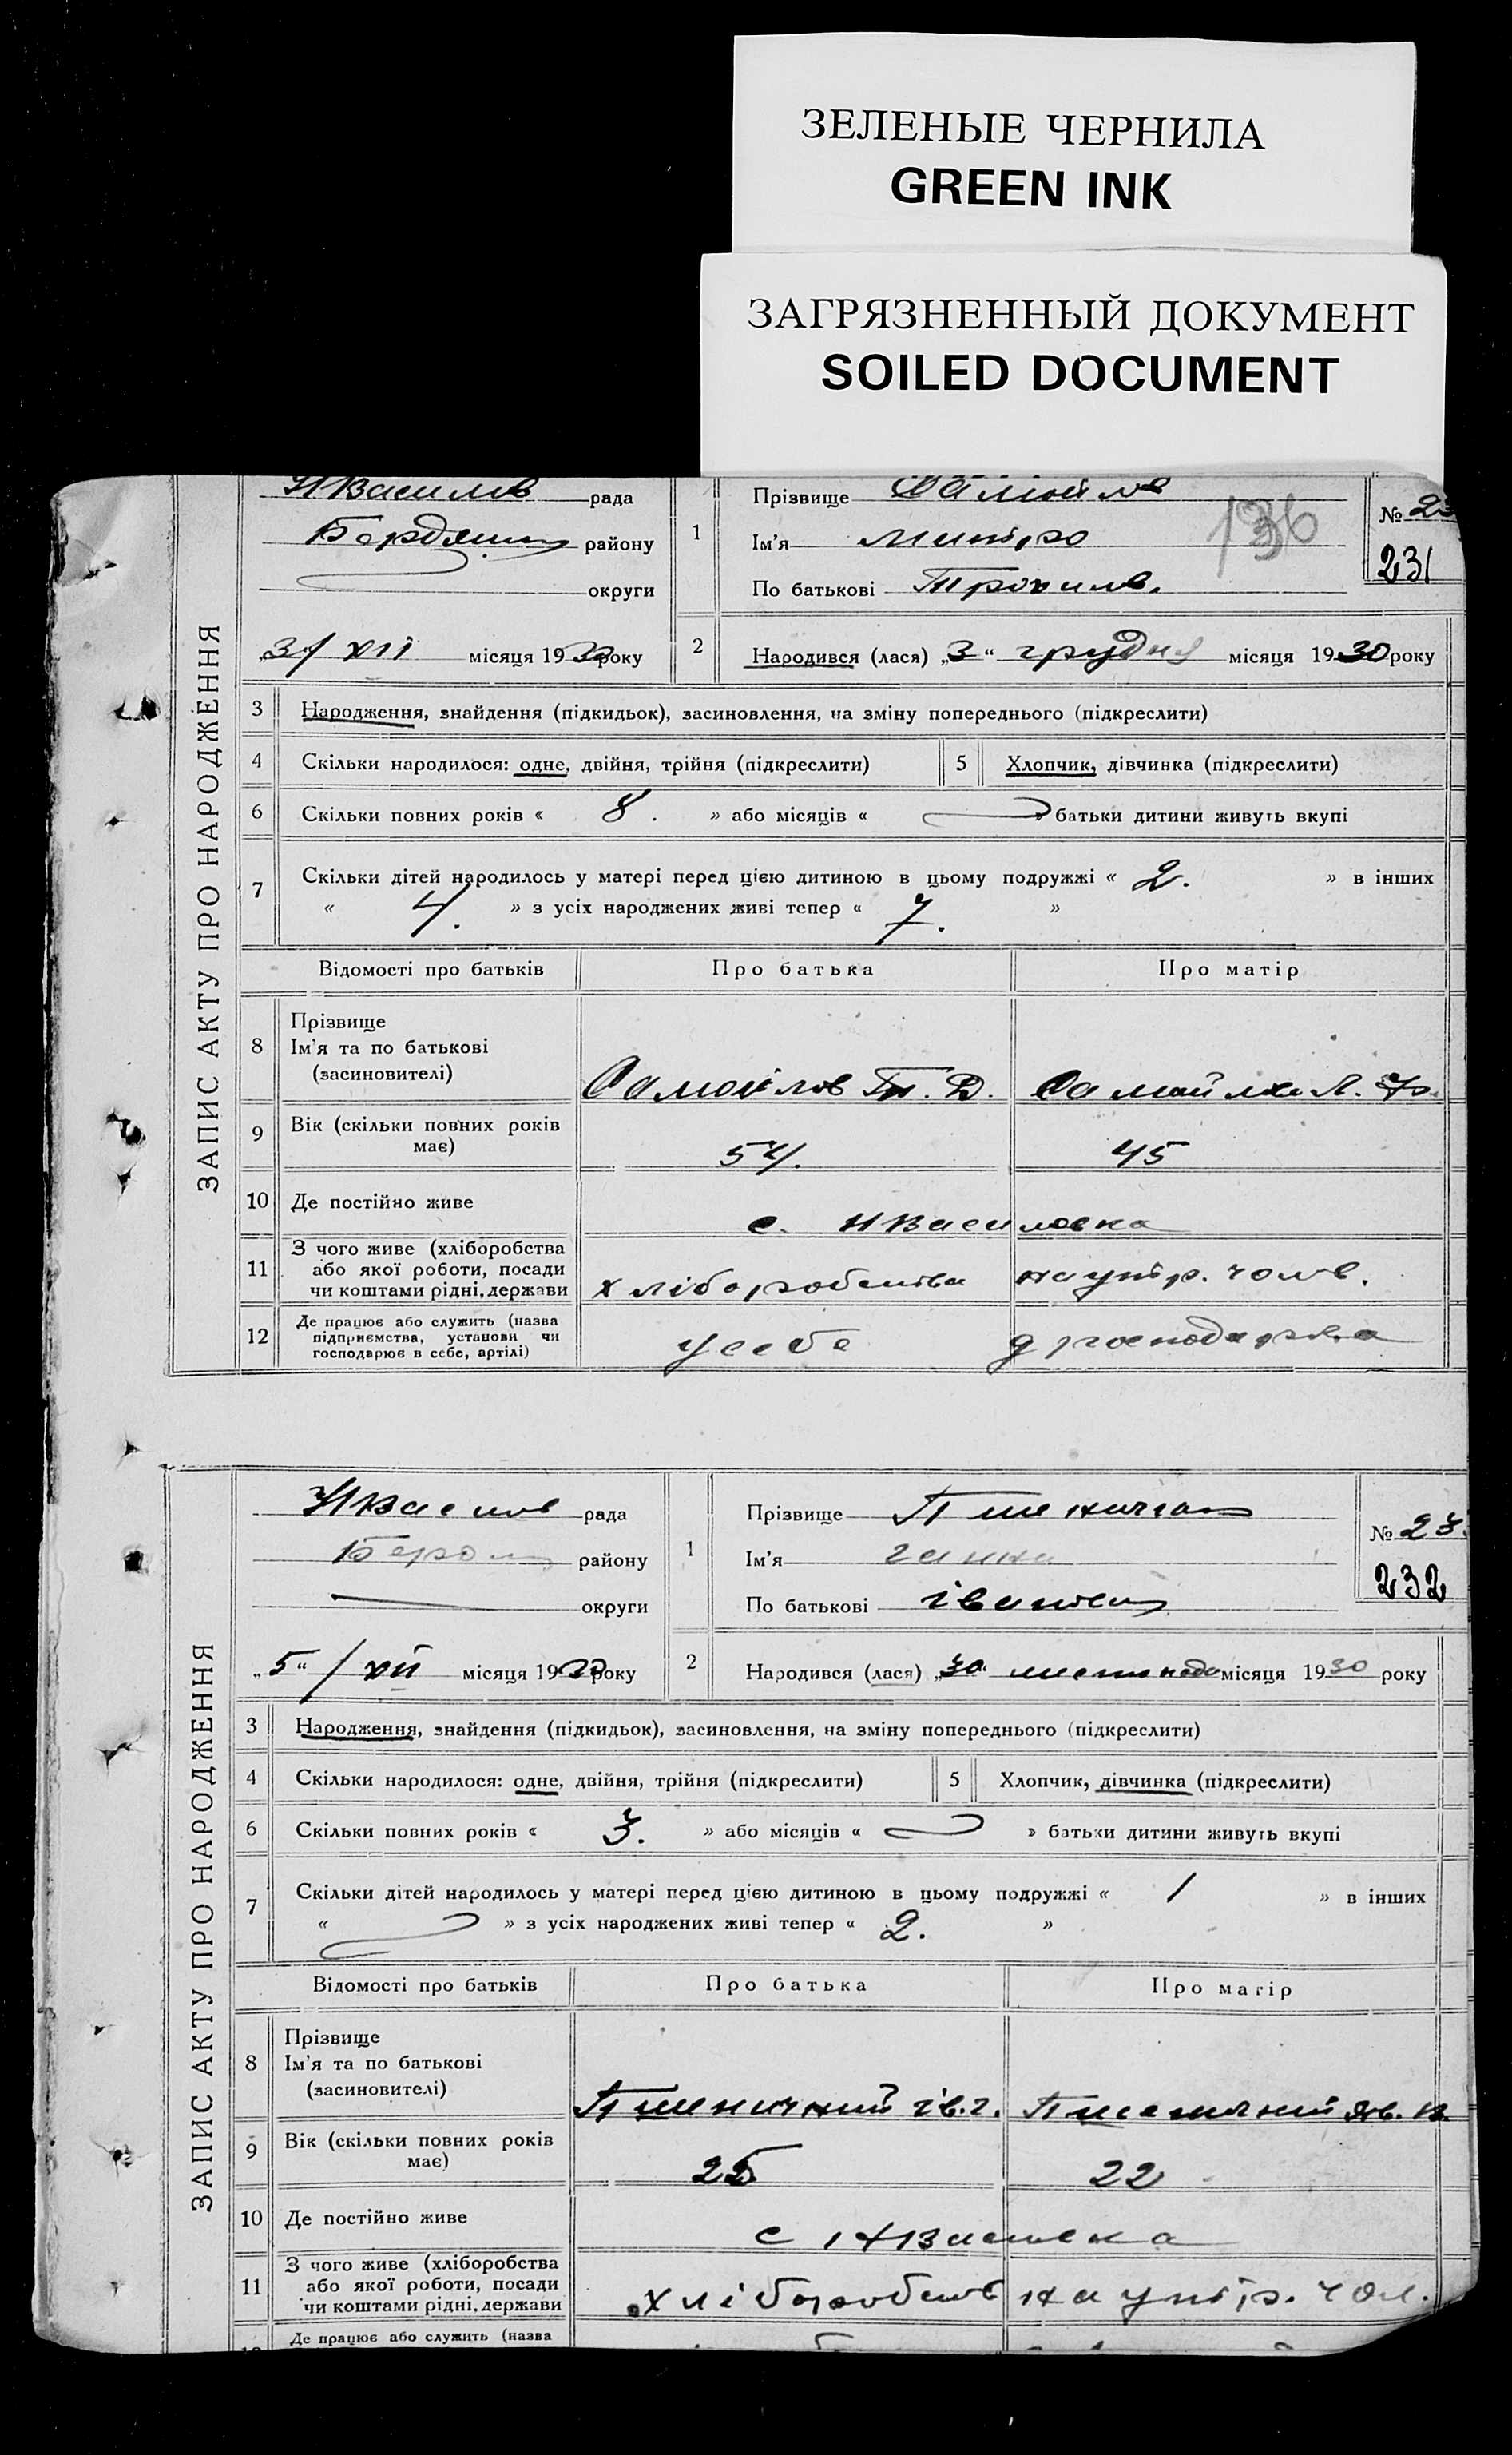 ЗЕЛЕНЫЕ ЧЕРНИЛА
GREEN INK
ЗАГРЯЗНЕННЫЙ ДОКУМЕНТ
SOILED DOCUMENT
ЗАПИС АКТУ ПРО НАРОДЖЕННЯ
НВасилів рада
району
округи
3/XII місяця 1930 року
1
Прізвище Самойлов
Ім'я Митро
По батькові
136
№ 23
231
2 Народився (лася) „3“ грудня місяця 1930 року
3 Народження, знайдення (підкидьок), засиновлення, на зміну попереднього (підкреслити)
4 Скільки народилося: одне, двійня, трійня (підкреслити) 5 Хлопчик, дівчинка (підкреслити)
6 Скільки повних років « 8. » або місяців « » батьки дитини живуть вкупі
7 Скільки дітей народилось у матері перед цією дитиною в цьому подружжі « 2. » в інших
« 4. » з усіх народжених живі тепер « 7. »
Відомості про батьків Про батька Про матір
8 Прізвище
Ім'я та по батькові
(засиновителі)
Самойлов Т. Д.
9 Вік (скільки повних років
має)
54. 45
10 Де постійно живе с. НВасиловка
11 З чого живе (хліборобства
або якої роботи, посади
чи коштами рідні, держави
хліборобства на утр. чолов.
12 Де працює або служить (назва
підприємства, установи чи
господарює в себе, артілі)
у себе д господарка
ЗАПИС АКТУ ПРО НАРОДЖЕННЯ
НВасилів рада
району
округи
„5“/XII місяця 1930 року
1
Прізвище
Ім'я ганна
По батькові івановна
№ 23
232
2 Народився (лася) „30“ листопада місяця 1930 року
3 Народження, знайдення (підкидьок), засиновлення, на зміну попереднього (підкреслити)
4 Скільки народилося: одне, двійня, трійня (підкреслити) 5 Хлопчик, дівчинка (підкреслити)
6 Скільки повних років « 3. » або місяців « » батьки дитини живуть вкупі
7 Скільки дітей народилось у матері перед цією дитиною в цьому подружжі « 1 » в інших
« » з усіх народжених живі тепер « 2. »
Відомості про батьків Про батька Про матір
8 Прізвище
Ім'я та по батькові
(засиновителі)
Пшеничний ів. г.
9 Вік (скільки повних років
має)
25 22
10 Де постійно живе с
11 З чого живе (хліборобства
або якої роботи, посади
чи коштами рідні, держави
хліборобств на утр. чол.
Де працює або служить (назва